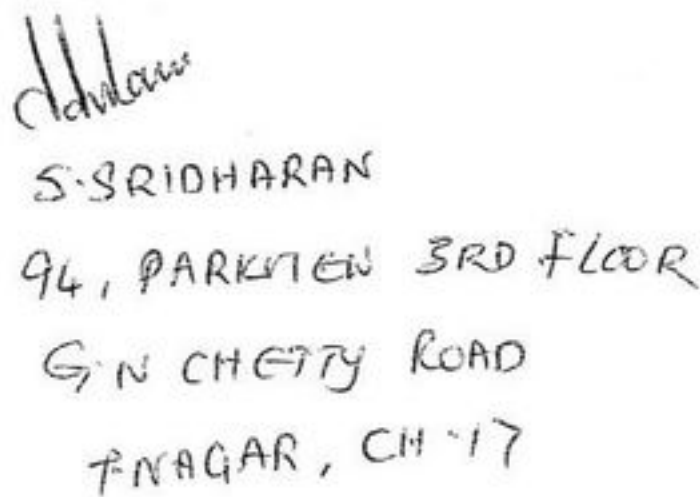 S.SRIDHARAN
94, PARKVIEW 3RD FLOOR
G.N CHETTY ROAD
T.NAGAR, CH-17